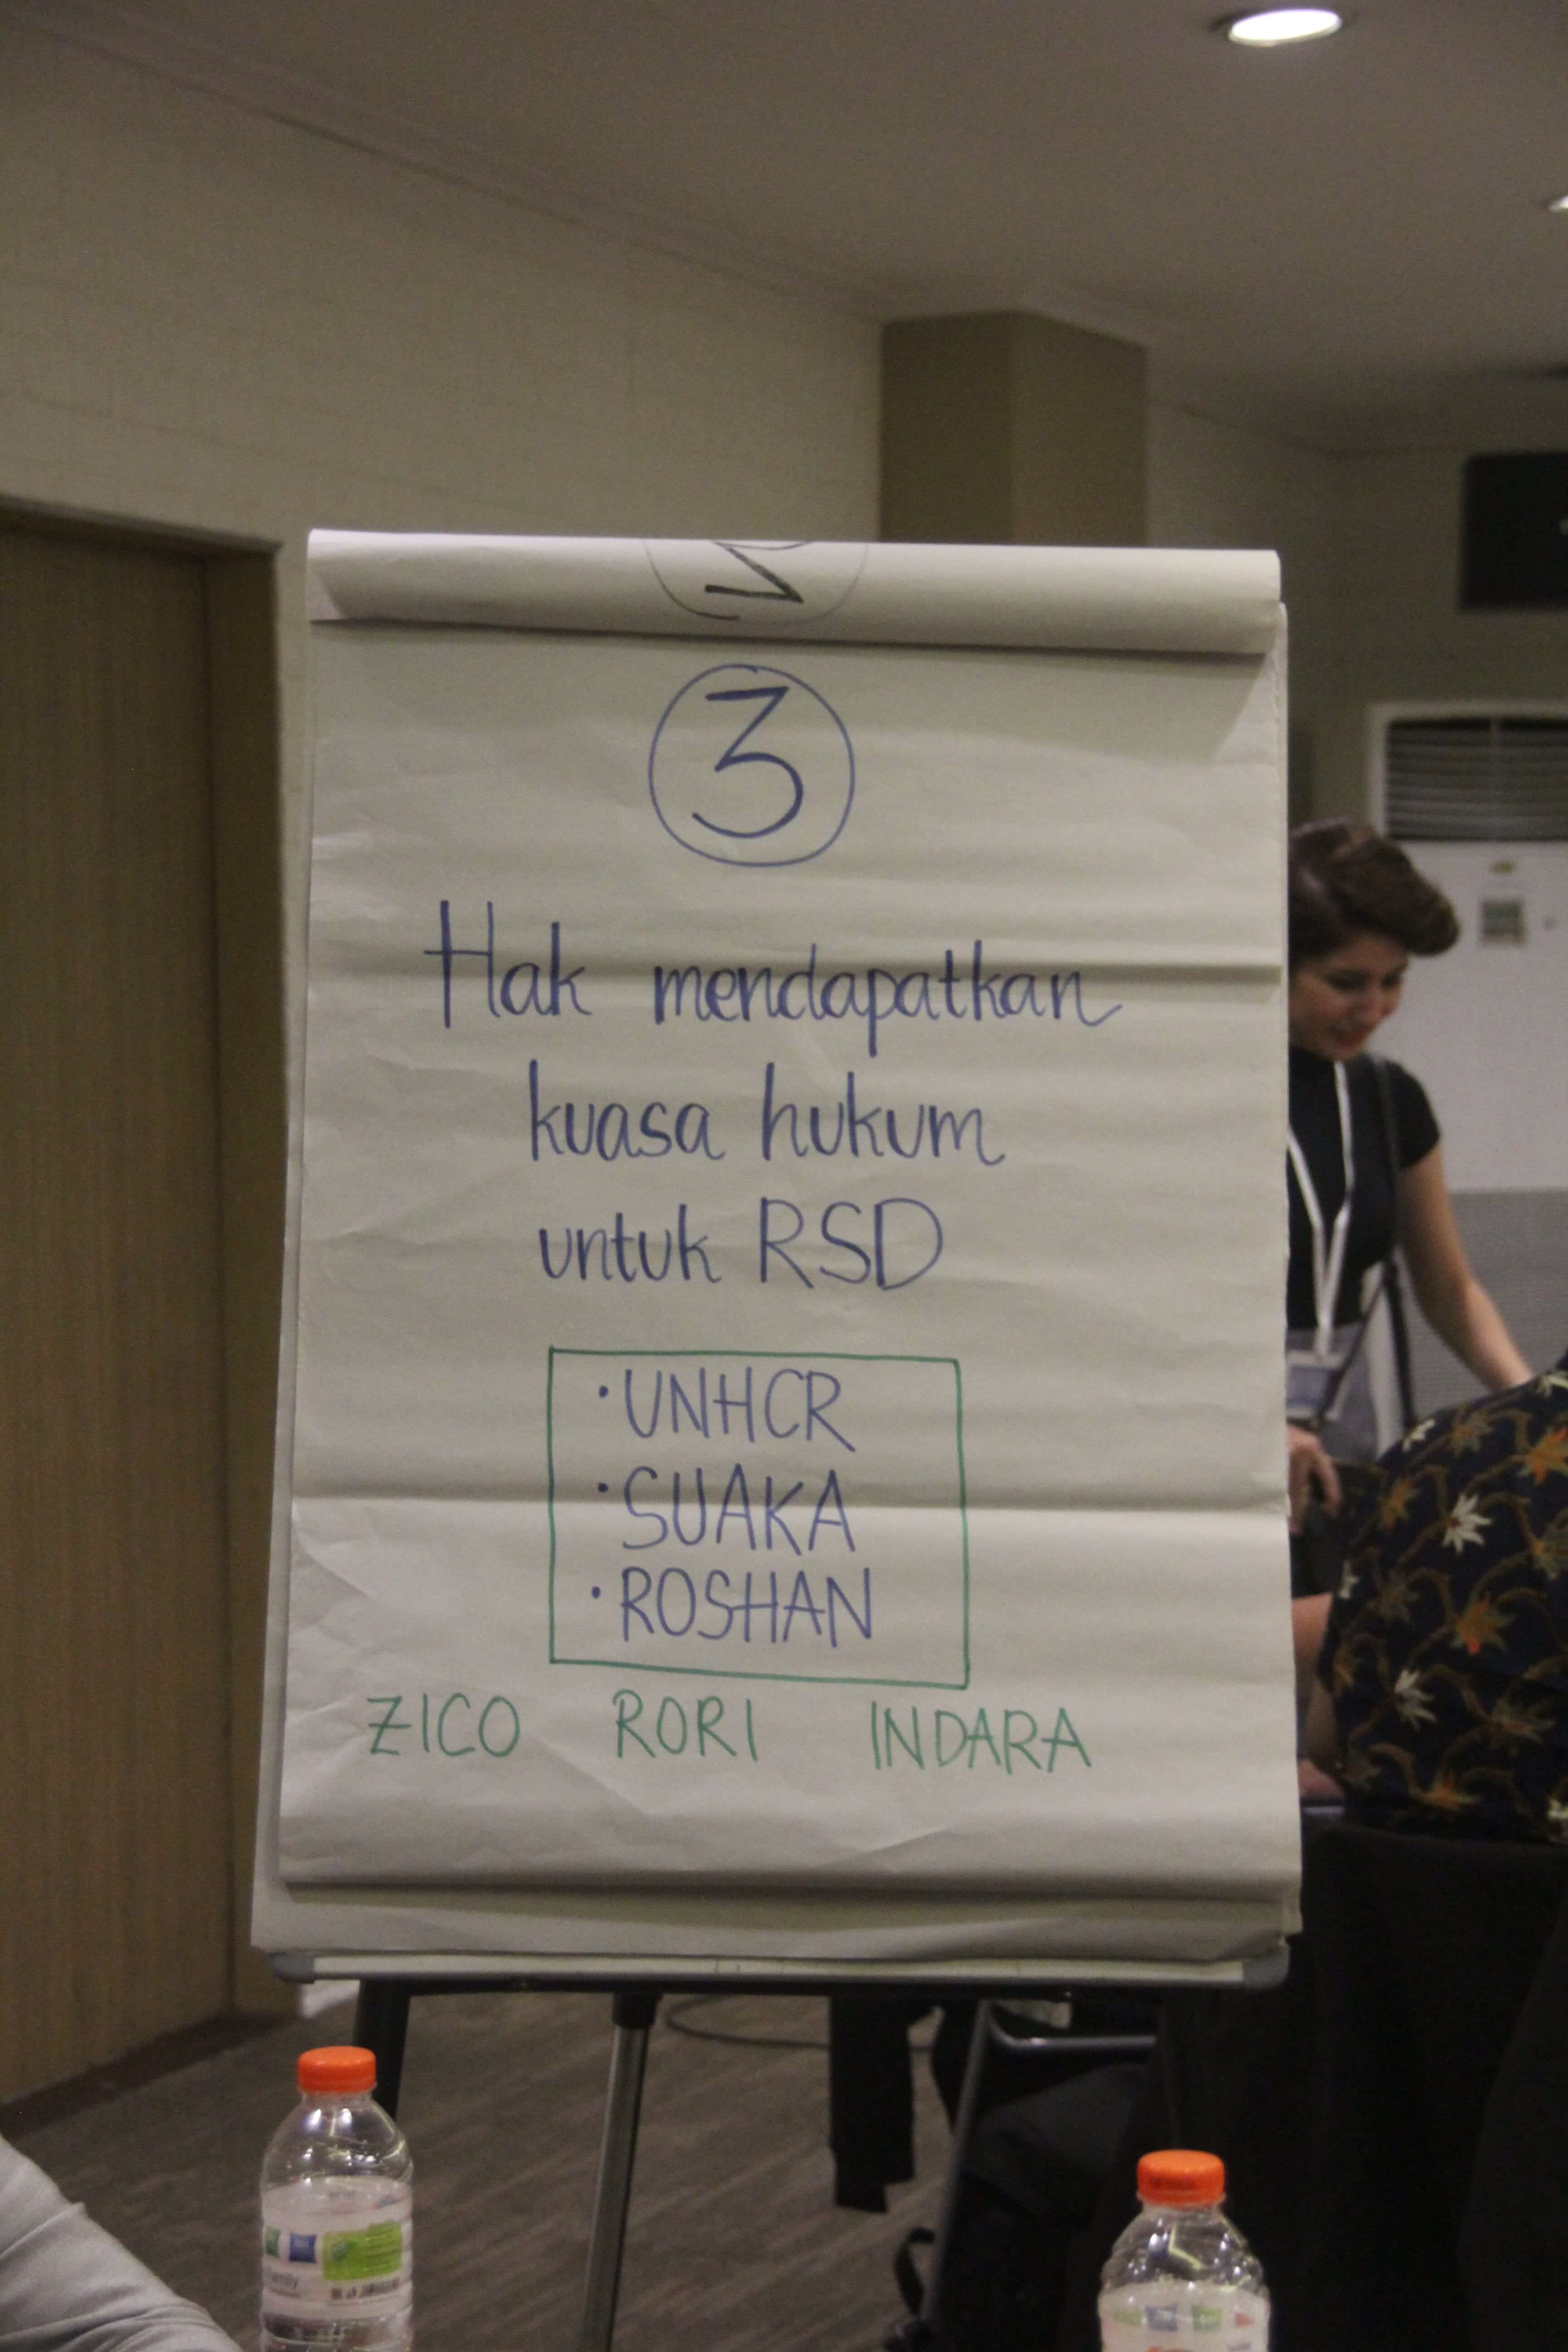 3
Hak mendapatkan
kuasa hukum
untuk RSD
• UNHCR
• SUAKA
• ROSHAN
ZICO RORI INDARA